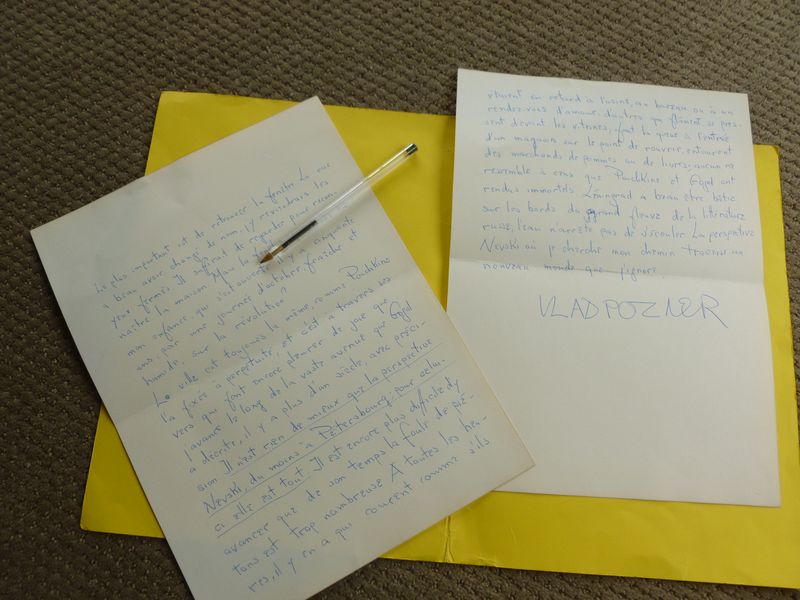 Le plus important est de retrouver la fenêtre La rue
a beau avoir changé de nom, j'y reviendrais les
yeux fermés. Il suffirait de regarder pour recon-
naître la maison Mais la
mon enfance, qui s'est ouverte, il y a cinquante
ans, par une journée d'octobre, fraîche et
humide, sur la révolution?
La ville est toujours la même, comme Pouchkine
l'a fixée à perpétuité, et c'est à travers ses
vers qui font encore pleurer de joie que
j'avance le long de la vaste avenue que Gogol
a décrite, il y a plus d'un siècle, avec préci-
sion Il n'est rien de mieux que la perspective
Nevski, du moins à Pétersbourg; pour celui-
ci elle est tout Il est encore plus difficile d'y
avancer que de son temps la foule de pié-
tons est trop nombreuse A toutes les heu-
res, il y en a qui courent comme s'ils
étaient en retard à l'usine, au bureau ou à un
rendez-vous d'amour, d'autres, qui flânent se pres-
sent devant les vitrines, font la queue à l'entrée
d'un magasin sur le point de rouvrir, entourent
des marchands de pommes ou de livres; aucun ne
ressemble à ceux que Pouchkine et Gogol ont
rendus immortels Léningrad a beau être bâtie
sur les bords du grand fleuve de la littérature
russe, l'eau n'arrête pas de s'écouler La perspective
Nevski où je cherche mon chemin traverse un
nouveau monde que j'ignore.
VLAD POZNER